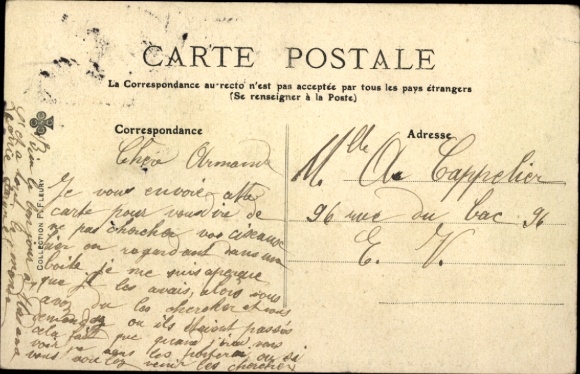 CARTE POSTALE
La Correspondance au recto n'est pas acceptée par tous les pays étrangers
(Se renseigner à la Poste)
Correspondance
Chère Armande
Je vous envoie cette
carte pour vous dire de
ne pas chercher vos ciseaux
car en regardant dans ma
boîte je me suis aperçue
que je les avais, alors vous
avez du les chercher et vous
demander ou ils étaient passés
cela fait que quand j'irai vous
voir je vous les porterai ou si
vous voulez venir les chercher
Adresse
Mlle A Cappelier
96 rue du bac 96
E. V.
COLLECTION P. FLEURY